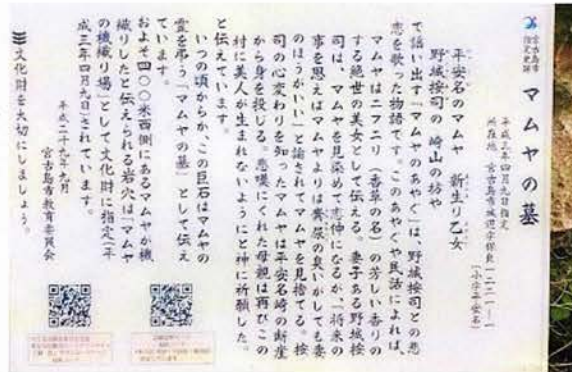 宮古島市
指定史跡
マムヤの墓
平成三年四月九日指定
所在地 宮古島市城辺字保良一二二一ー一
(小字平安名)
平安名のマムヤ 新生り乙女
野城按司の 崎山の坊や
で謡い出す「マムヤのあやぐ」は、野城按司との悲
恋を歌った物語です。このあやぐや民話によれば、
マムヤはニフニリ(香草の名)の芳しい香りの
する絶世の美女として伝える。妻子ある野城按
司は、マムヤを見染めて恋仲になるが、「将来の
事を思えばマムヤよりは糞尿の臭いがしても妻
のほうがいい」と諭されてマムヤを見捨てる。按
司の心変わりを知ったマムヤは平安名崎の断崖
から身を投じる。悲嘆にくれた母親は再びこの
村に美人が生まれないようにと神に祈願した。
と伝えています。
いつの頃からか、この巨石はマムヤの
霊を弔う「マムヤの墓」として伝え
ています。
およそ四〇〇米西側にあるマムヤが機
織りしたと伝えられる岩穴は「マムヤ
の機織り場」として文化財に指定(平
成三年四月九日)されています。
平成二十九年九月
宮古島市教育委員会
文化財を大切にしましょう。